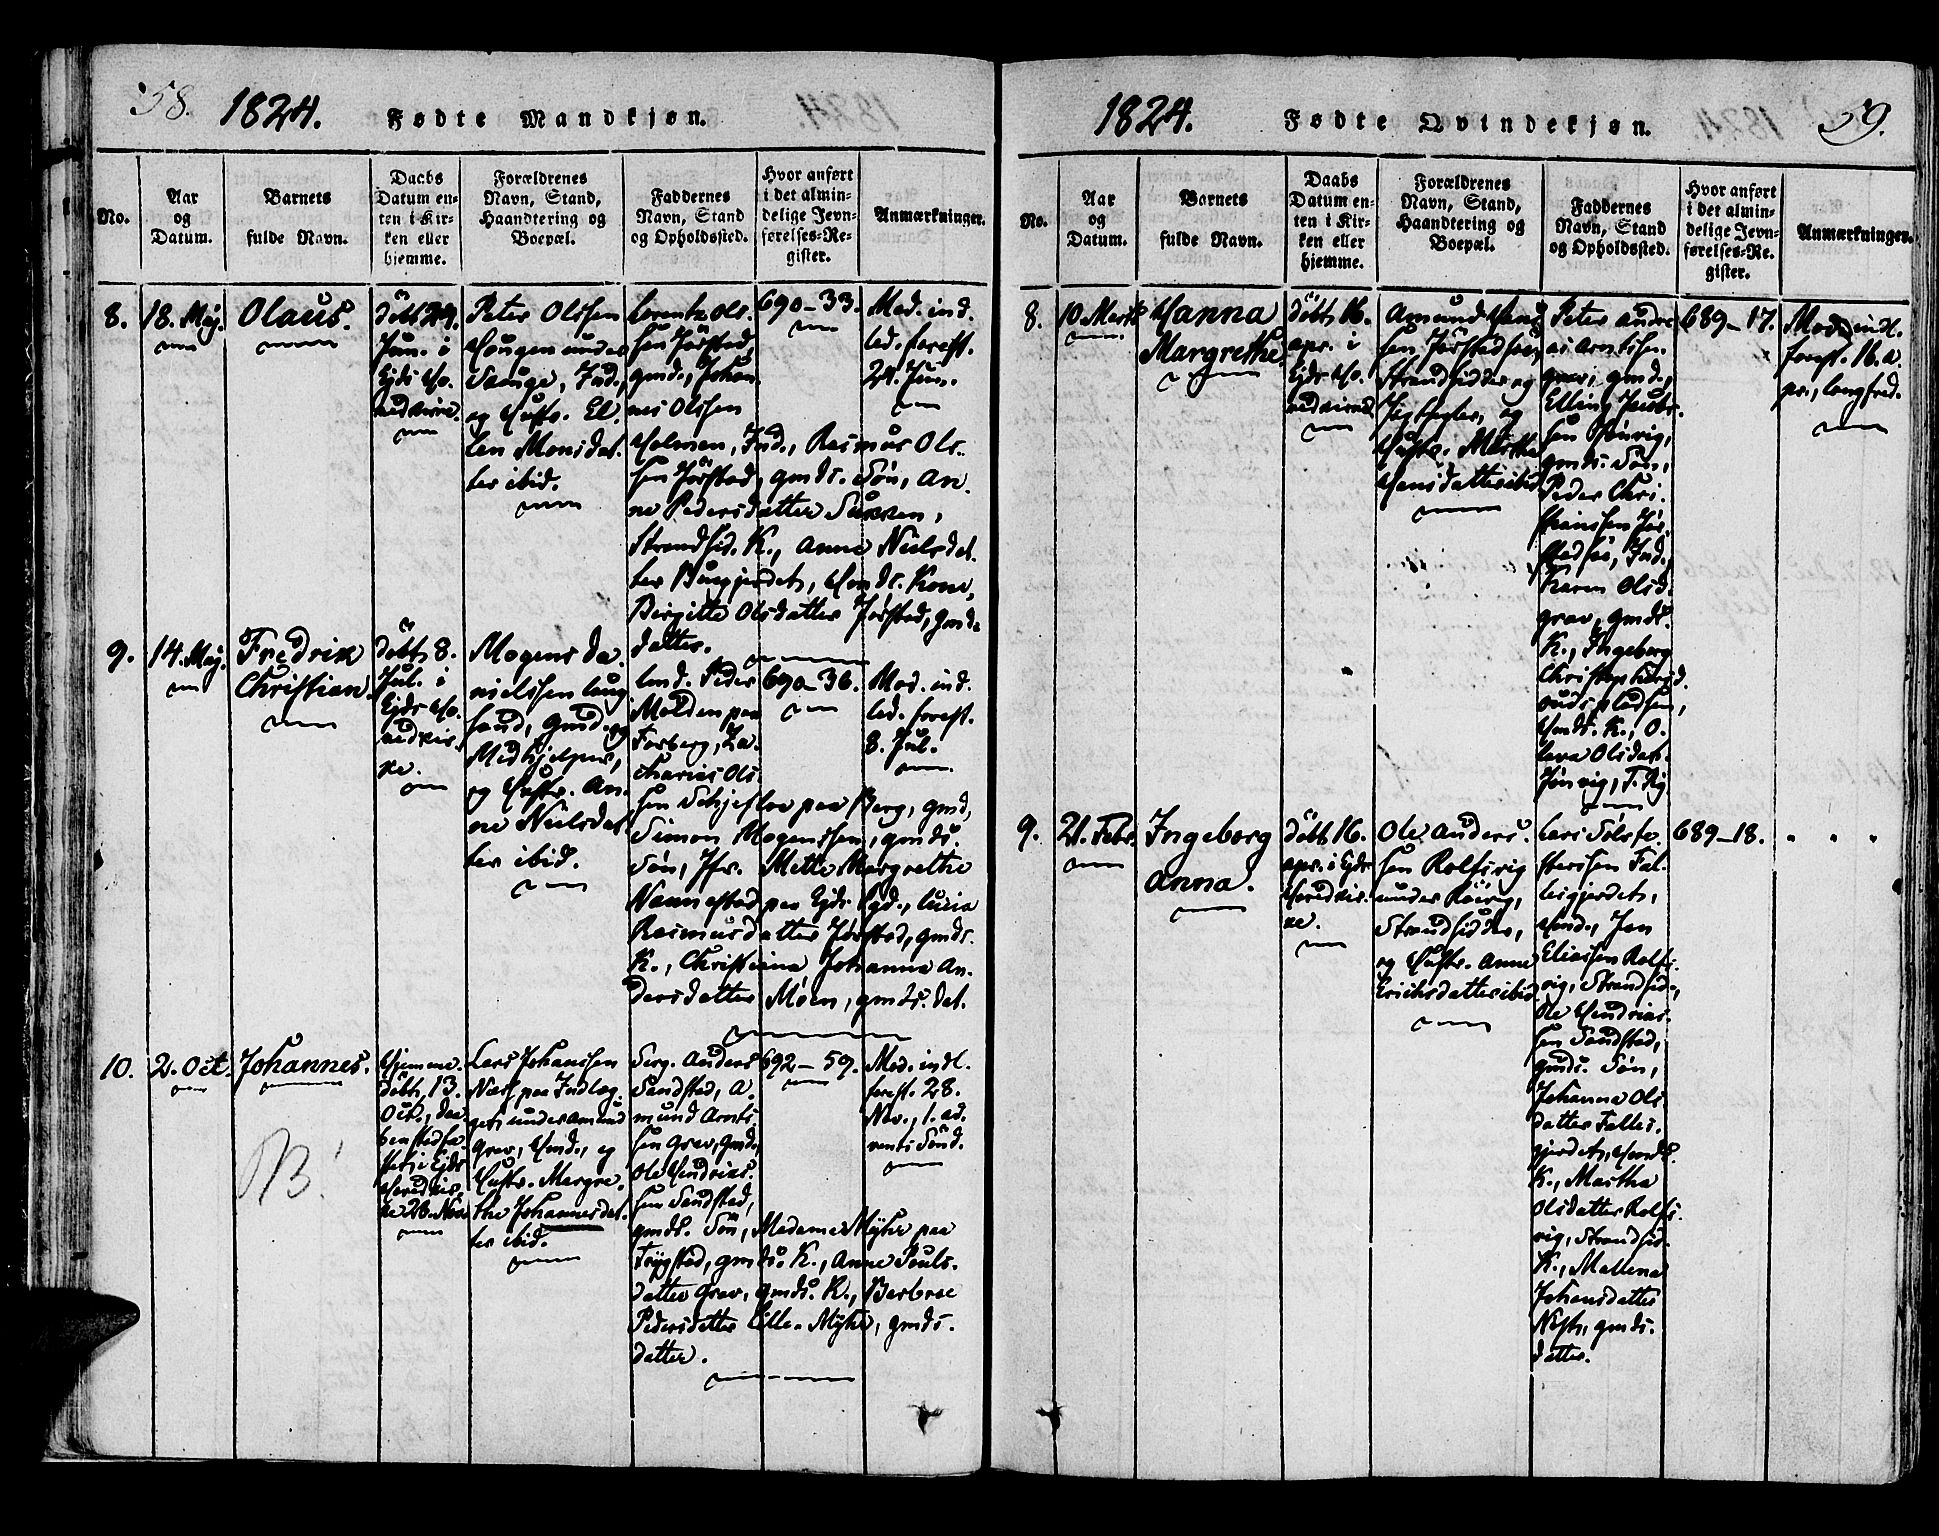 58.
1824.
Fødte Mandkjøn.
No.
Aar
og
Datum.
Barnets
fulde Navn.
Daabs
Datum en-
ten i Kir-
ken eller
hjemme.
Forældrenes
Navn, Stand,
Haandtering og
Boepæl.
Faddernes
Navn, Stand
og Opholdssted.
Hvor anført
i det almin-
delige Jevn-
førelses-Re-
gister.
Anmærkninger.
8.
18. Maj.
Olaus.
döbt 29.
Jun. i
Ejds Ho-
vedkirke.
Peter Olssen
Haugen under
Hauge, Ind.,
og Hustr. El-
len Monsdat-
ter ibid.
Lorentz Ols-
sen Jörstad,
gmd., Johan-
nes Olssen
Holmen, Ind., Rasmus Ols-
sen Jörstad, gmds. Sön, An-
ne Pedersdatter
Strandsid. K., Anne Nielsdat-
ter Hmds. Kone,
Birgitte Olsdatter Jörstad, gmds
datter.
690-33.
Mod. ind-
led. forest.
29. Jun.
9.
14. Maj.
Fredrik
Christian
döbt 8.
Jul. i
Ejds Ho-
vedkir-
ke.
Mogens Da-
nielssen
Gmd. og
Medhjelper,
og Hustr. An-
ne Nielsdat-
ter ibid.
Peder
paa
Za-
charias Ols-
sen paa Berg, gmd,
Simon Mogenssen, gmds.
Sön, Jfr. Mette Margrethe
Nannestad paa Ejds Pgd., Lucia
Rasmusdatter Jörstad, gmds.
K., Christiana Johanna An-
dersdatter Moen, gmds. dat.
690-36.
Mod. ind-
led. forest.
8. Jul.
10.
2. Oct.
Johannes.
NB!
Hjemme-
döbt 13.
Oct., daa-
ben stadfæ-
stet i Ejds
Hovedkir-
ke 28. Nov.
Lars Johanssen
Næss paa Indlæg-
get under Amund
Grav, Hmd., og
Hustr. Margre-
the Johannesdat-
ter ibid.
Serg. Anders
Sandstad, A-
mund Arnts-
sen Grav, gmd.,
Ole Hendriks-
sen Sandstad,
gmds. Sön, Madame Myhr paa
Trygstad, gmds. K., Anne Pouls-
datter Grav, gmds. K., Berbroe
Pedersdatter Lille-Myhr, gmds.
datter.
692-59.
Mod. indl.
forest. 28.
Nov., 1. Ad-
vents Sönd.
1824.
Fødte Qvindekjøn.
59.
No.
Aar
og
Datum.
Barnets
fulde Navn.
Daabs
Datum en-
ten i Kir-
ken eller
hjemme.
Forældrenes
Navn, Stand,
Haandtering og
Boepæl.
Faddernes
Navn, Stand
og Opholdssted.
Hvor anført
i det almin-
delige Jevn-
førelses-Re-
gister.
Anmærkninger.
8.
10. Marts
Hanna
Margrethe.
döbt 16.
Apr. i
Ejds Ho-
vedkirke
Amund Hans
sen Jörstadsöen,
Strandsidder og
og
Hustr. Martha
Hansdatter ibid
Peter Andre-
as Arntssen
Grav, gmd.,
Elling Jacobs-
sen
gmds. Sön,
Peder Chri-
stianssen Jör-
stadsöe, Ind.,
Karen Olsd.
Grav, gmds.
K., Ingeborg
Hmds. K., O-
lava Olsdat-
689-17.
Mod. indl.
forest. 16. A-
pr., Langfred.
9.
21. Febr.
Ingeborg
Anna.
döbt 16.
Apr. i Ejds
Hovedkir-
ke.
Ole Anders-
sen Rolfsvig
under
Strandsidder,
og Hustr. Anne
Erichsdatter ibid
Lars Sölfe-
stersen Fal-
lesgjerdet,
Hmd., Jon
Eliassen Rolfs-
vig, Strandsid.,
Ole Hendriks-
sen Sandstad,
gmds. Sön,
Johanna Ols
datter Falles-
gjerdet, Hmds.
K., Martha
Olsdatter Rolfs-
vig, Strandsid.
K., Mallena
Johansdatter
gmds.
datter.
689-18.